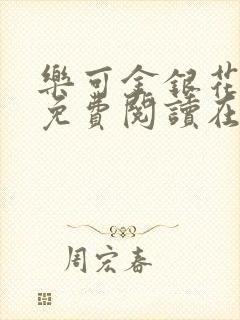 樂可金銀花
免費閱讀在
周宏春